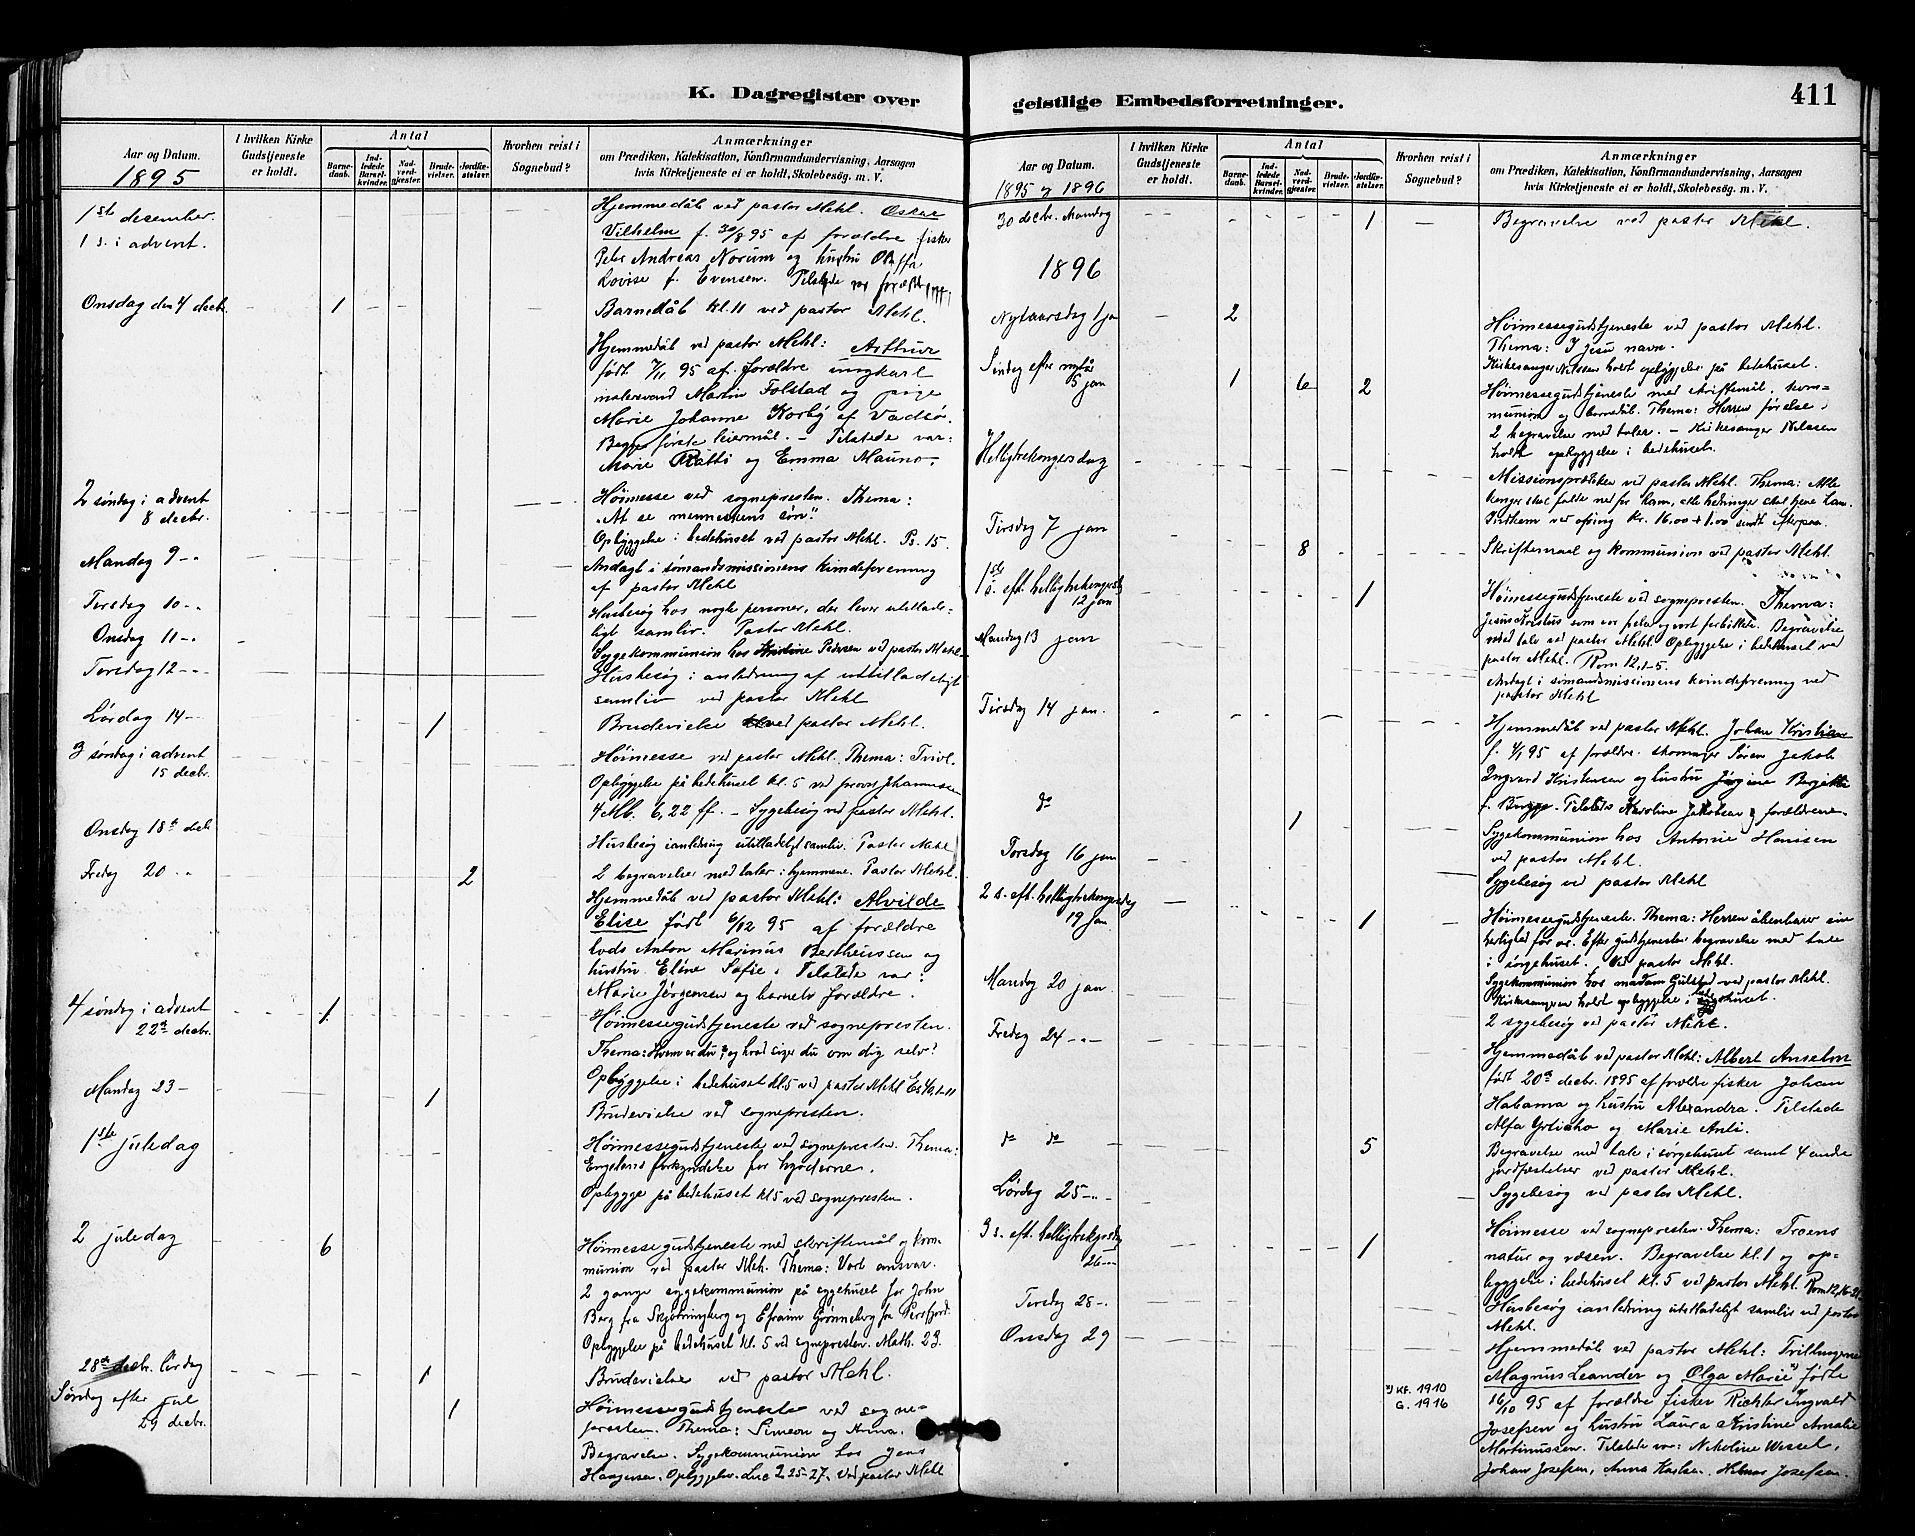 K. Dagregister over
Aar og Datum.
1895
I hvilken Kirke
Gudstjeneste
er holdt.
Antal
Barne-
daab.
Ind-
ledede
Barsel-
kvinder.
Nad-
verd-
gjester.
Brude-
vielser.
Jordfæ-
stelser.
Hvorhen reist i
Sognebud?
Anmærkninger
om Prædiken, Katekisation, Konfirmandundervisning, Aarsagen
hvis Kirketjeneste ei er holdt, Skolebesøg. m. V.
1ste december.
1 s. i advent.
Hjemmedåb ved pastor Mehl. Oskar
Vilhelm f. 30/8 95 af forældre fisker
Peter Andreas Norum og hustru
Lovise f. Evensen. Tilstede
Onsdag den 4 decbr. 1
Barnedåb kl. 11 ved pastor Mehl.
Hjemmedåb ved pastor Mehl: Arthur
født 7/11 95 af forældre ungkarl
malersvend Martin Folstad og pige
Marie Johanne Korbÿ af Vadsø.
Begges første leiermål. – Tilstede var:
Marie Ratti og Emma Mauno.
2 søndag i advent
8 decbr.
Høimesse ved sognepresten. Thema:
"At se menneskens søn."
Opbyggelse i bedehuset ved pastor Mehl. Ps. 15.
Mandag 9 – "
Andagt i sømandsmissionens kvindeforening
af pastor Mehl
Tirsdag 10 – "
Husbesøg hos nogle personer, der lever utillade-
ligt samliv. Pastor Mehl.
Onsdag 11 – "
Sygekommunion hos Kristine Pedersen ved pastor Mehl
Torsdag 12 – "
Husbesøg i anledning af utilladeligt
samliv ved pastor Mehl
Lørdag 14 – 1
Brudevielse ved pastor Mehl.
3 søndag i advent
15 decbr.
Høimesse ved pastor Mehl. Thema: Tvivl.
Opbyggelse på bedehuset kl. 5 ved provst Johannessen
4 Mb. 6,22 ff. – Sygebesøg ved pastor Mehl.
Onsdag 18de decbr
Husbesøg i anledning utilladeligt samliv. Pastor Mehl
Fredag 20 " 2
2 begravelser med taler i hjemmene. Pastor Mehl.
Hjemmedåb ved pastor Mehl: Alvilde
Elise født 6/12 95 af forældre
lods Anton Marinus Bertheussen og
hustru Eline Sofie. Tilstede var:
Marie Jørgensen og barnets forældre.
4 søndag i advent
22de decbr. 1
Høimessegudstjeneste ved sognepresten.
Thema: Hvem er du? og hvad siger du om dig selv?
Opbyggelse i bedehuset kl. 5 ved pastor Mehl Es. 40,1-11
Mandag 23 – 1
Brudevielse ved sognepresten.
1ste juledag
Høimessegudstjeneste ved sognepresten. Thema:
Englens forkyndelse for hyrderne.
Opbygge på bedehuset kl. 5 ved sognepresten.
2 juledag 6
Høimessegudstjeneste med skriftemål og kom-
munion ved pastor Meh. Thema: Vort ansvar.
2 gange sygekommunion på sygehuset for John
Berg fra Skjøtningberg og Efraim Grønneberg fra Persfjord.
Opbyggelse på bedehuset kl. 5 ved sognepresten. Math. 23.
28de decbr. lørdag 1
Brudevielse ved pastor Mehl.
Søndag efter jul
29 decbr. 1
Høimessegudstjeneste ved sogne-
presten. Thema: Simeon og Anna.
Begravelse. Sygekommunion hos Jens
Haagensen. Opbyggelse. Luc 2,25-27. Ved pastor Mehl
geistlige Embedsforretninger.
411
Aar og Datum.
1895 og 1896
I hvilken Kirke
Gudstjeneste
er holdt.
Antal
Barne-
daab.
Ind-
ledede
Barsel-
kvinder.
Nad-
verd-
gjester.
Brude-
vielser.
Jordfæ-
stelser.
Hvorhen reist i
Sognebud?
Anmærkninger
om Prædiken, Katekisation, Konfirmandundervisning, Aarsagen
hvis Kirketjeneste ei er holdt, Skolebesøg. m. V.
30 decbr. Mandag 1
Begravelse ved pastor Mehl.
1896
Nytaarsdag 1 jan 2
Høimessegudstjeneste ved pastor Mehl.
Thema: I Jesu navn.
Kirkesanger Nilssen holdt opbyggelse på bedehuset.
Søndag efter nytår
5 jan 1 6 2
Høimessegudstjeneste med skriftemål, kom-
munion og barnedåb. Thema: Herren førelse.
2 begravelser med taler. – Kirkesanger Nilssen
holdt opbyggelse i bedehuset.
Helligtrekongersdag
Missionsprædiken ved pastor Mehl. Thema: Alle
konger skal falde ned for ham, alle hedninger skal tjene ham.
Indkom ved ofring Kr. 16,00 + 1,00 sendt efterpaa.
Tirsdag 7 jan 8
Skriftemaal og kommunion ved pastor Mehl.
1ste s. eft. helligtrekongersdg
12 jan 1
Høimessegudstjeneste ved sognepresten. Thema:
Jesus Kristus som vor frelser og vort forbillede. Begravelse
med tale ved pastor Mehl. Opbyggelse i bedehuset ved
pastor Mehl. Rom 12,1-5.
Mandag 13 jan
Andagt i sømandsmissionens kvindeforening ved
pastor Mehl
Tirsdag 14 jan.
Hjemmedåb ved pastor Mehl. Johan Kristian
f. 4/1 95 af forældre skomager Søren Jakob
Ingvard Kristensen og hustru Jørgine Bergitte
f. Tilstede Karoline Jakobsen og forældrene.
do 1
Sygekommunion hos Antonie Hansen
ved pastor Mehl.
Torsdag 16 jan
Sygebesøg ved pastor Mehl
2 s. eft. helligtrekongersdg
19 jan 1
Høimessegudstjeneste. Thema: Herren åbenbarer sin
herlighed for os. Efter gudstjenesten begravelse med tale
i sørgehuset. Ved pastor Mehl.
Sygekommunion hos madam Gulstad ved pastor Mehl.
Kirkesangeren holdt opbyggelse i bedehuset.
Mandag 20 jan.
2 sygebesøg ved pastor Mehl.
Fredag 24 – "
Hjemmedåb ved pastor Mehl: Albert Anselm
født 20de decbr. 1895 af forældre fisker Johan
Habama og hustru Alexandra. Tilstede
Alfa Yrtiaho og Marie Anti.
do do 5
Begravelse med tale i sørgehuset samt 4 andre
jordfæstelser ved pastor Mehl.
Lørdag 25 – "
Sygebesøg ved pastor Mehl.
3 s. eft. helligtrekgsdg
26 – 1
Høimesse ved sognepresten. Thema: Troens
natur og væsen. Begravelse kl. 1 og op-
byggelse i bedehuset kl. 5 ved pastor Mehl. Rom 12,16-21
Tirsdag 28 –
Husbesøg i anledning utilladeligt samliv ved pastor
Mehl.
Onsdag 29
Hjemmedåb ved pastor Mehl: Tvillingerne
Magnus Leander og Olga Marie *) fødte
*) Kf. 1910
G. 1916
16/10 95 af forældre fisker Richter Ingvald
Josefsen og hustru Laura Kristine Amalie
Martinussen. Tilstede var: Nikoline Wessel,
Johan Josefsen, Anna Karlsen. Josefsen.